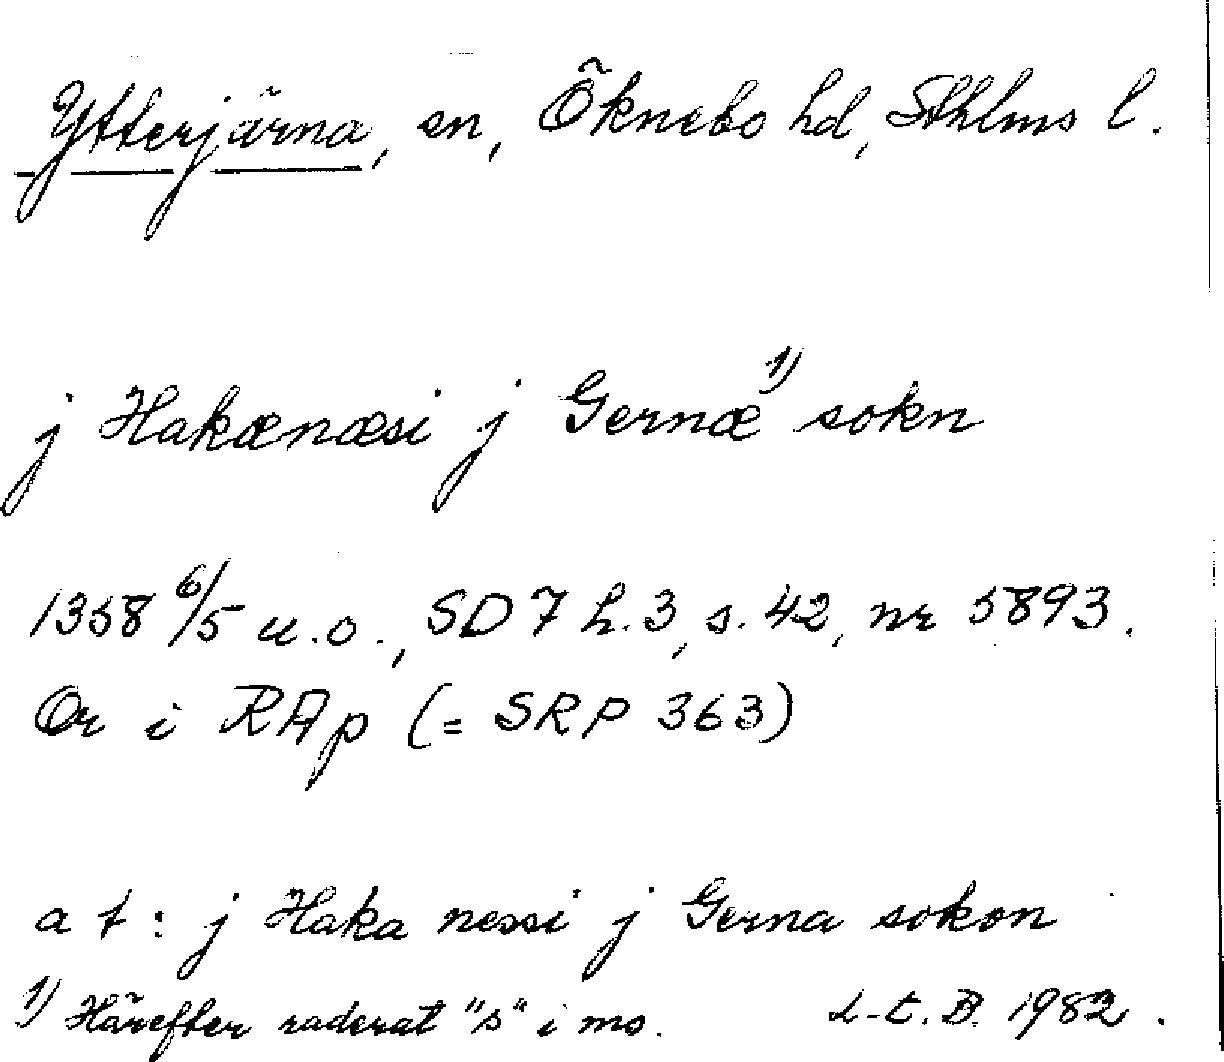 Ytterjärna, sn, Öknebo hd, Sthlms l.
j Hakænæsi j Gernæ 1) sokn
1358 6/5 u.o., SD 7 h. 3, s. 42, nr 5893.
Or i RAp (= SRP 363)
a t : j Haka nessi j Gerna sokon
1) Härefter raderat "s" i ms. L-E. D. 1982.